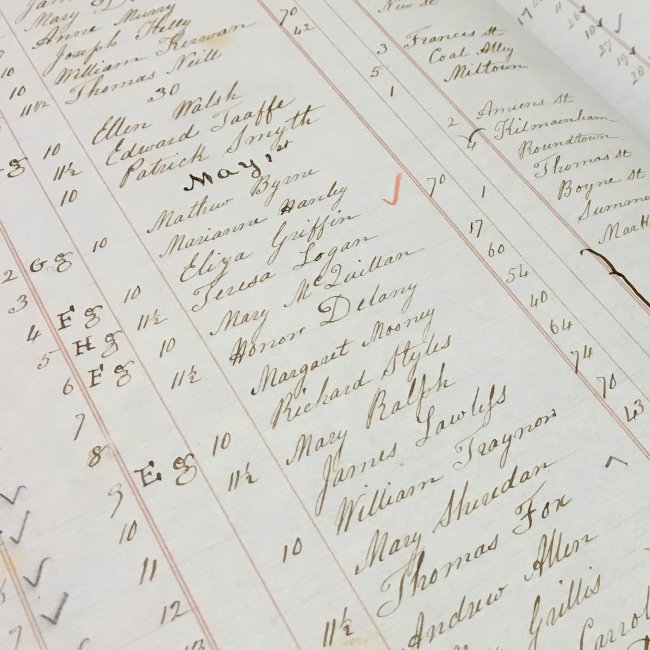 Anne Murry
10 Joseph Kelly
10 William Kerwan 70 New St
11½ Thomas Neill 42
30 3 Francis St
Ellen Walsh 5 Coal Alley
g 10 Edward Taaffe 1 Miltown
11½ Patrick Smyth
10 May 1st 2 Amiens St
Mathew Byrne 4 Kilmainham
2 Gg 10 Marianne Hanley Roundtown
3 Eliza Griffin 70 1 Thomas St
4 Fg 10 Teresa Logan Boyne St
5 Hg 11½ Mary McQuillan 17
6 Fg 10 Honor Delany 60
7 11½ Margaret Mooney 54
8 Richard Styles 40
9 Eg 10 Mary Ralph 64
10 11½ James Lawless 74
11 William Traynor 70
12 10 Mary Sheridan 43
Thomas Fox
11½ Andrew Allen
Grillis